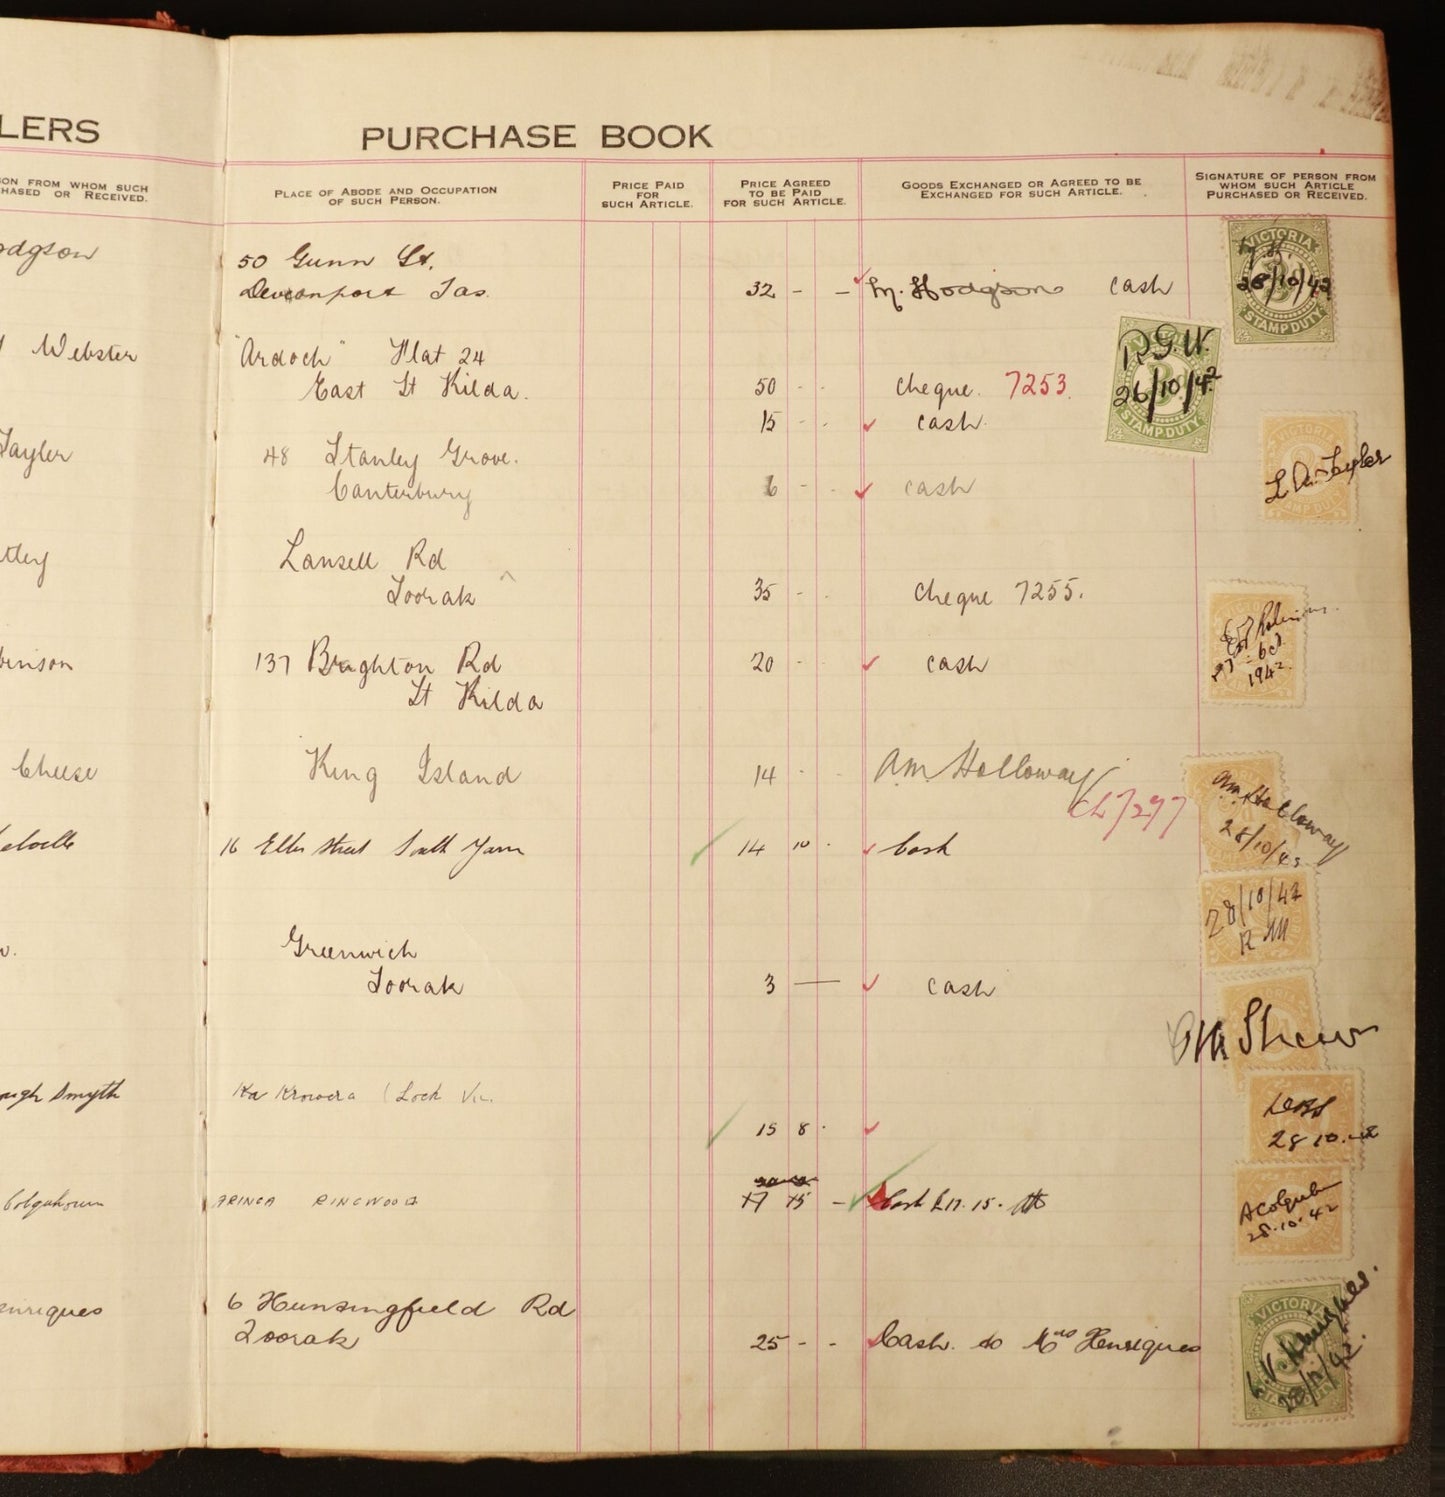 LERS PURCHASE BOOK
ON FROM WHOM SUCH
HASED OR RECEIVED.
PLACE OF ABODE AND OCCUPATION
OF SUCH PERSON.
PRICE PAID
FOR
SUCH ARTICLE.
PRICE AGREED
TO BE PAID
FOR SUCH ARTICLE.
GOODS EXCHANGED OR AGREED TO BE
EXCHANGED FOR SUCH ARTICLE.
SIGNATURE OF PERSON FROM
WHOM SUCH ARTICLE
PURCHASED OR RECEIVED.
odgson 50 Gunn St.
Devonport Tas. 32 - - M. Hodgson cash
VICTORIA
28/10/42
STAMP DUTY
Webster "Ardoch" Flat 24
East St Kilda. 50 - - cheque. 7253.
R.G.W.
26/10/42
STAMP DUTY
15 - - cash.
Tayler 48 Stanley Grove.
Canterbury 6 - - cash
VICTORIA
L. A. Tayler
STAMP DUTY
tley Lansell Rd
Toorak 35 - - cheque 7255.
binson 137 Brighton Rd 20 - - cash
St Kilda
Robinson
27 Oct
1942.
Cheese King Island 14 - - A.M. Holloway
Ch 7297
A.M. Holloway
28/10/42
16 Ellis Street South Yarra 14 10 - Cash
28/10/42
RM
Greenwich
Toorak 3 — cash
Shaw
ugh Smyth Ka Krowera (Loch Vic.
15 8 -
28.10.42
Colquhoun ARINGA RINGWOOD 17 15 - Cash £17.15.
A Colquhoun
28.10.42
enriques 6 Hunsingfield Rd
Toorak 25 - - Cash to Mrs Henriques
VICTORIA
Henriques.